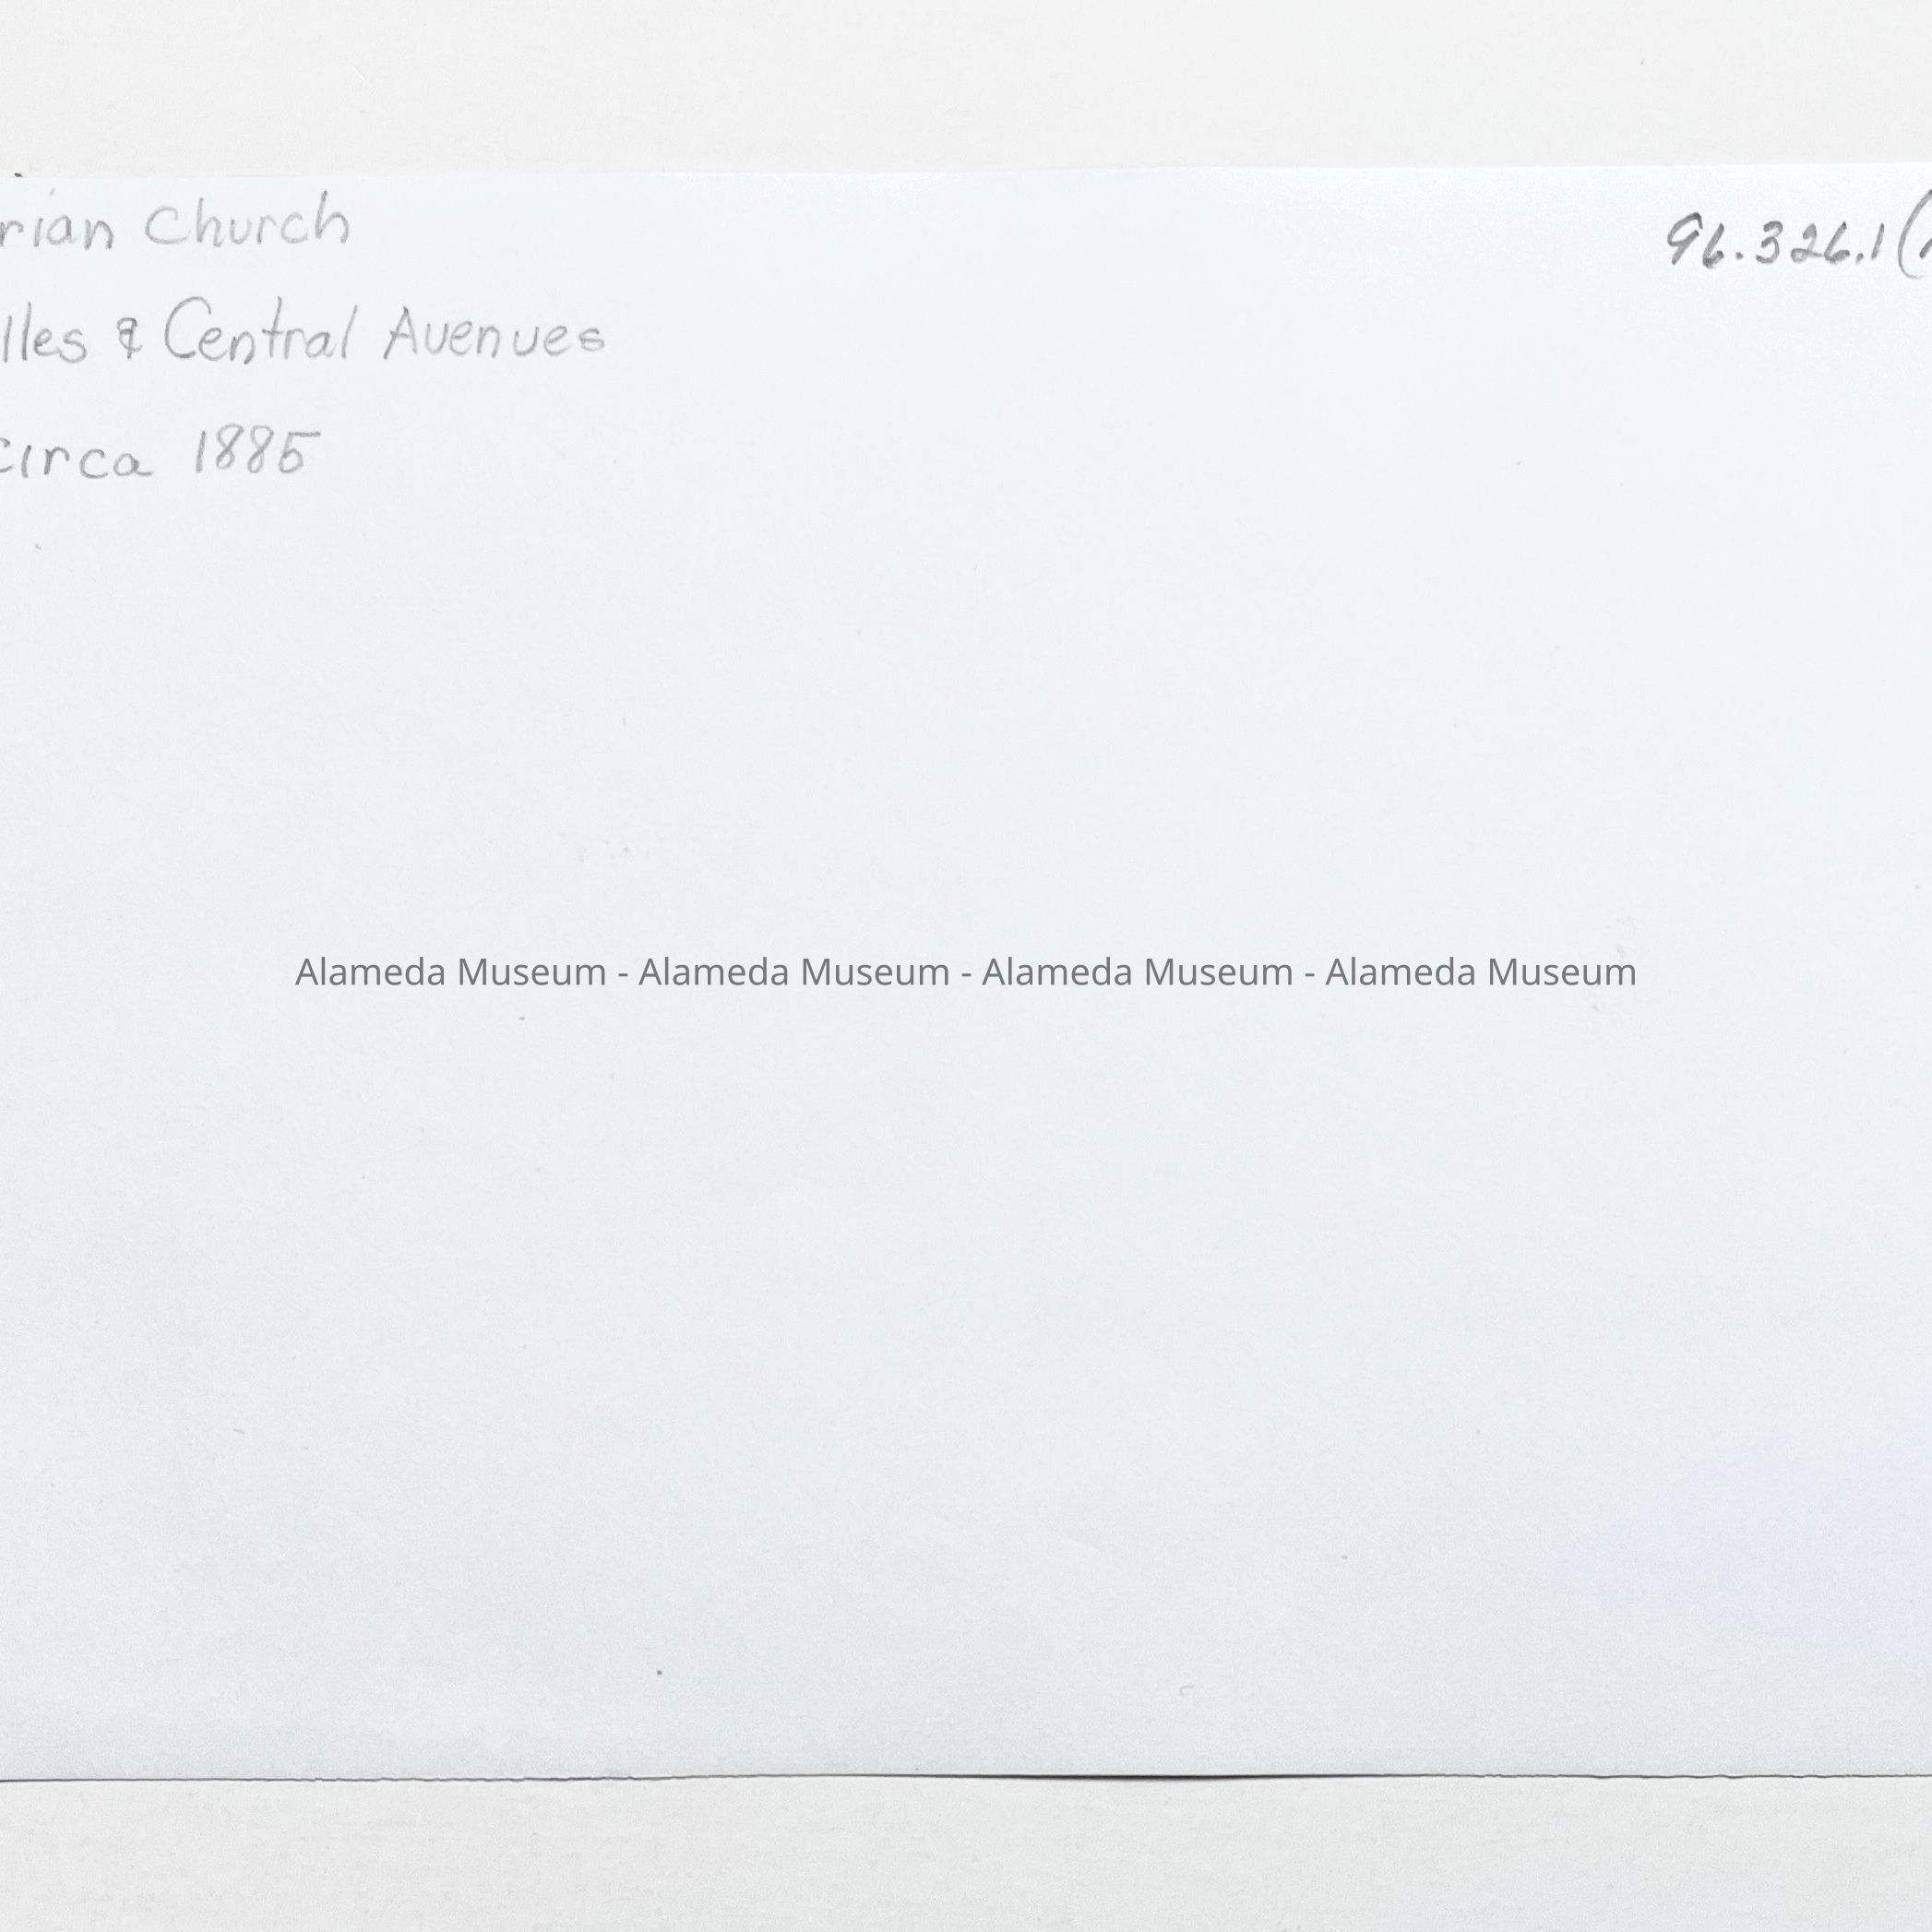 rian Church
96.326.1(
lles & Central Avenues
circa 1885
Alameda Museum - Alameda Museum - Alameda Museum - Alameda Museum